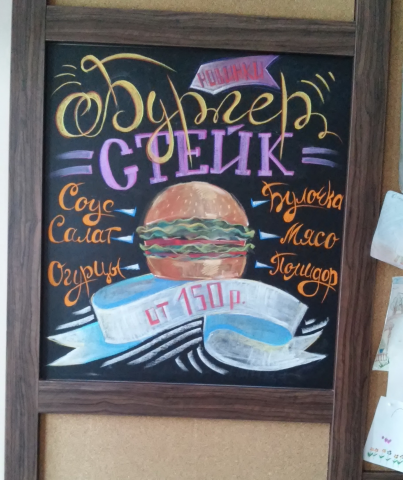 НОВИНКИ
Бургер
СТЕЙК
Соус
Салат
Огурцы
Булочка
Мясо
Помидор
от 150 р.